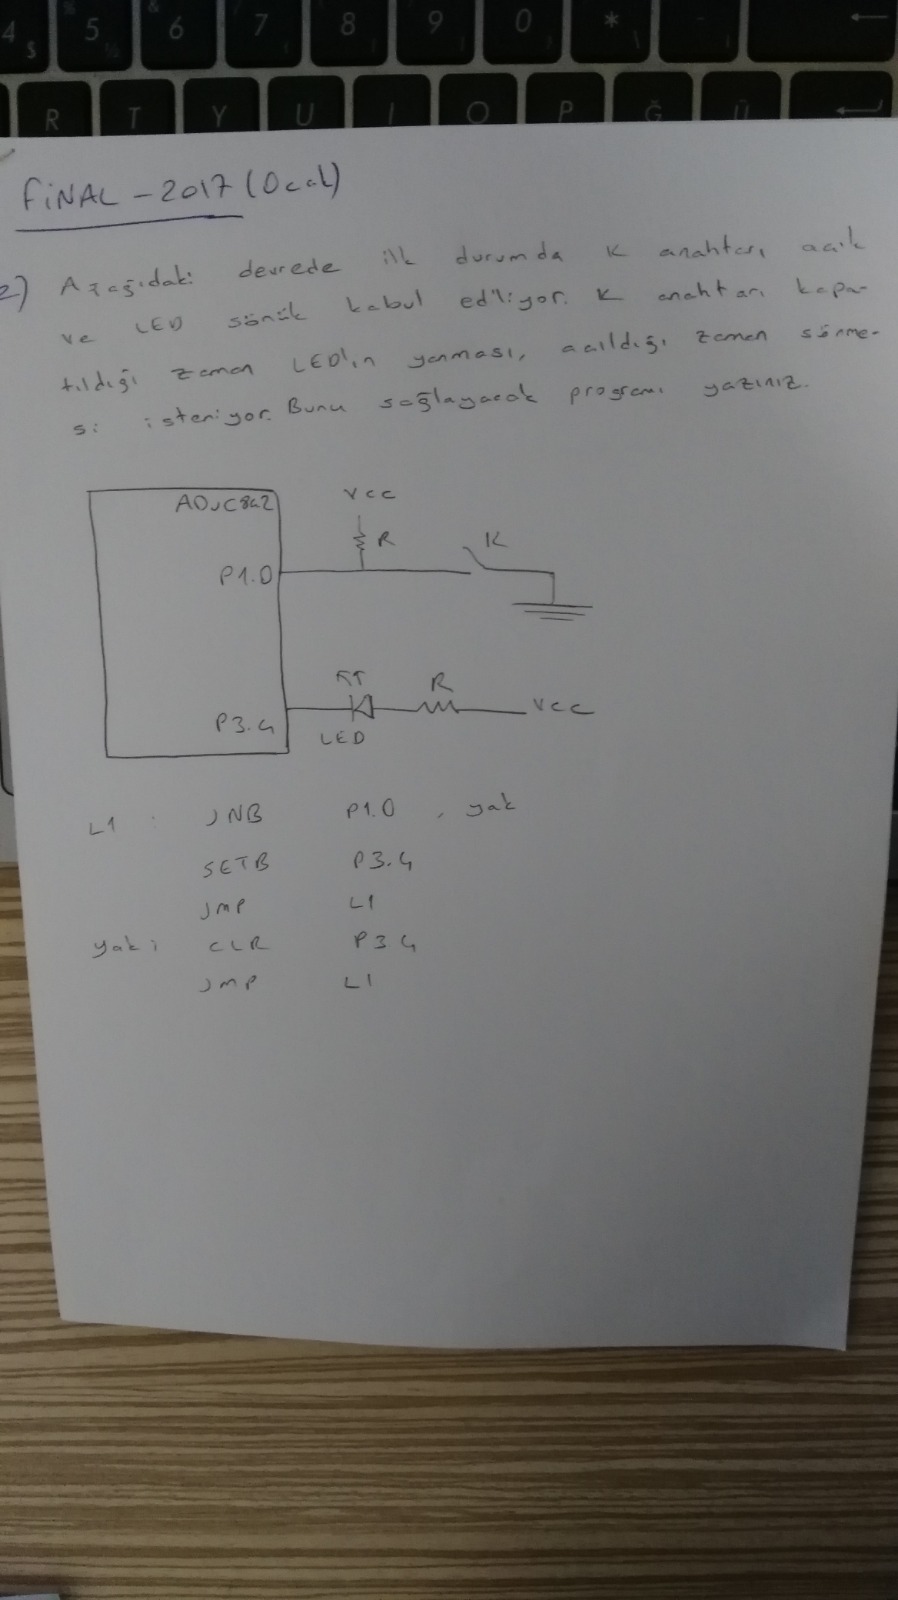 4 $ 5 6 & 7 8 9 0 * \ -
R T Y U I O P Ğ Ü
FiNAL - 2017 (Ocak)
2) Aşağıdaki devrede ilk durumda K anahtarı açık
ve LED sönük kabul ediliyor. K anahtarı kapa-
tıldığı zaman LED'in yanması, açıldığı zaman sönme-
si isteniyor. Bunu sağlayacak programı yazınız.
ADuC842
Vcc
R
K
P1.0
R
Vcc
P3.4
LED
L1 : JNB P1.0 , yak
SETB P3.4
JMP L1
yak: CLR P3 4
JMP L1